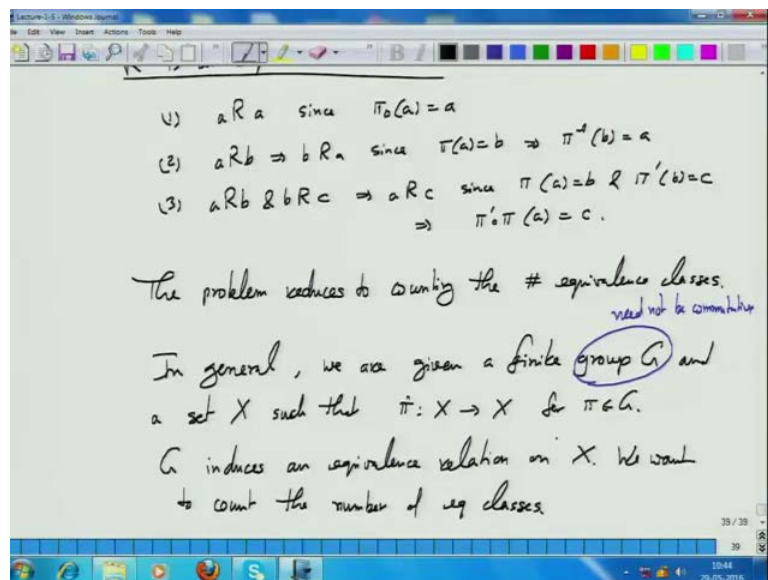 Lecture-1-5 - Windows Journal
Edit View Insert Actions Tools Help
(1) aRa since π₀(a)=a
(2) aRb ⇒ bRa since π(a)=b ⇒ π⁻¹(b)=a
(3) aRb & bRc ⇒ aRc since π(a)=b & π'(b)=c
⇒ π'∘π(a)=c.
The problem reduces to counting the # equivalence classes.
need not be commutative
In general, we are given a finite group G and
a set X such that π: X → X for π∈G.
G induces an equivalence relation on X. We want
to count the number of eq classes.
39 / 39
39
10:44
29-05-2016